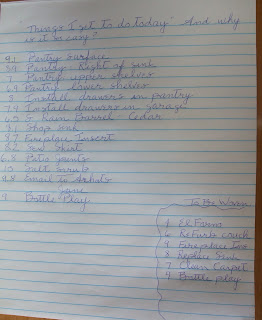 "Things I get to do today" And why
is it so easy?
9.1 Pantry Surface
Pantry Right of sink
Pantry upper shelves
6.9 Pantry lower shelves
5 Install drawers in pantry
7.9 Install drawers in garage
6.5 Rain Barrel - Cedar
8.1 Shop sink
8.2 Fireplace Insert
8.2 Sew Shirt
6.5 Patio Joints
10 Salt Scrub
9.8 Email to Artists
Jane
9 Bottle Play
To Be Woven
El Farns
6 Refurb couch
8 Fireplace Ins
8 Replace Sink
7 Clean Carpet
9 Bottle play